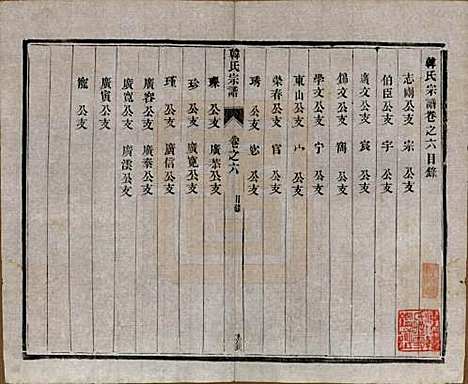 韓氏宗譜卷之六目錄
志爾公支 宗公支
伯臣公支 宇公支
廣文公支 寓公支
錫文公支 寯公支
學文公支 宁公支
東山公支 宀公支
榮春公支 官公支
琇公支 宓公支
韓氏宗譜 卷之六 目錄
瓈公支 廣葉公支
珍公支 廣寬公支
瑾公支 廣信公支
廣容公支 廣泰公支
廣寬公支 廣漢公支
廣寅公支
寵公支